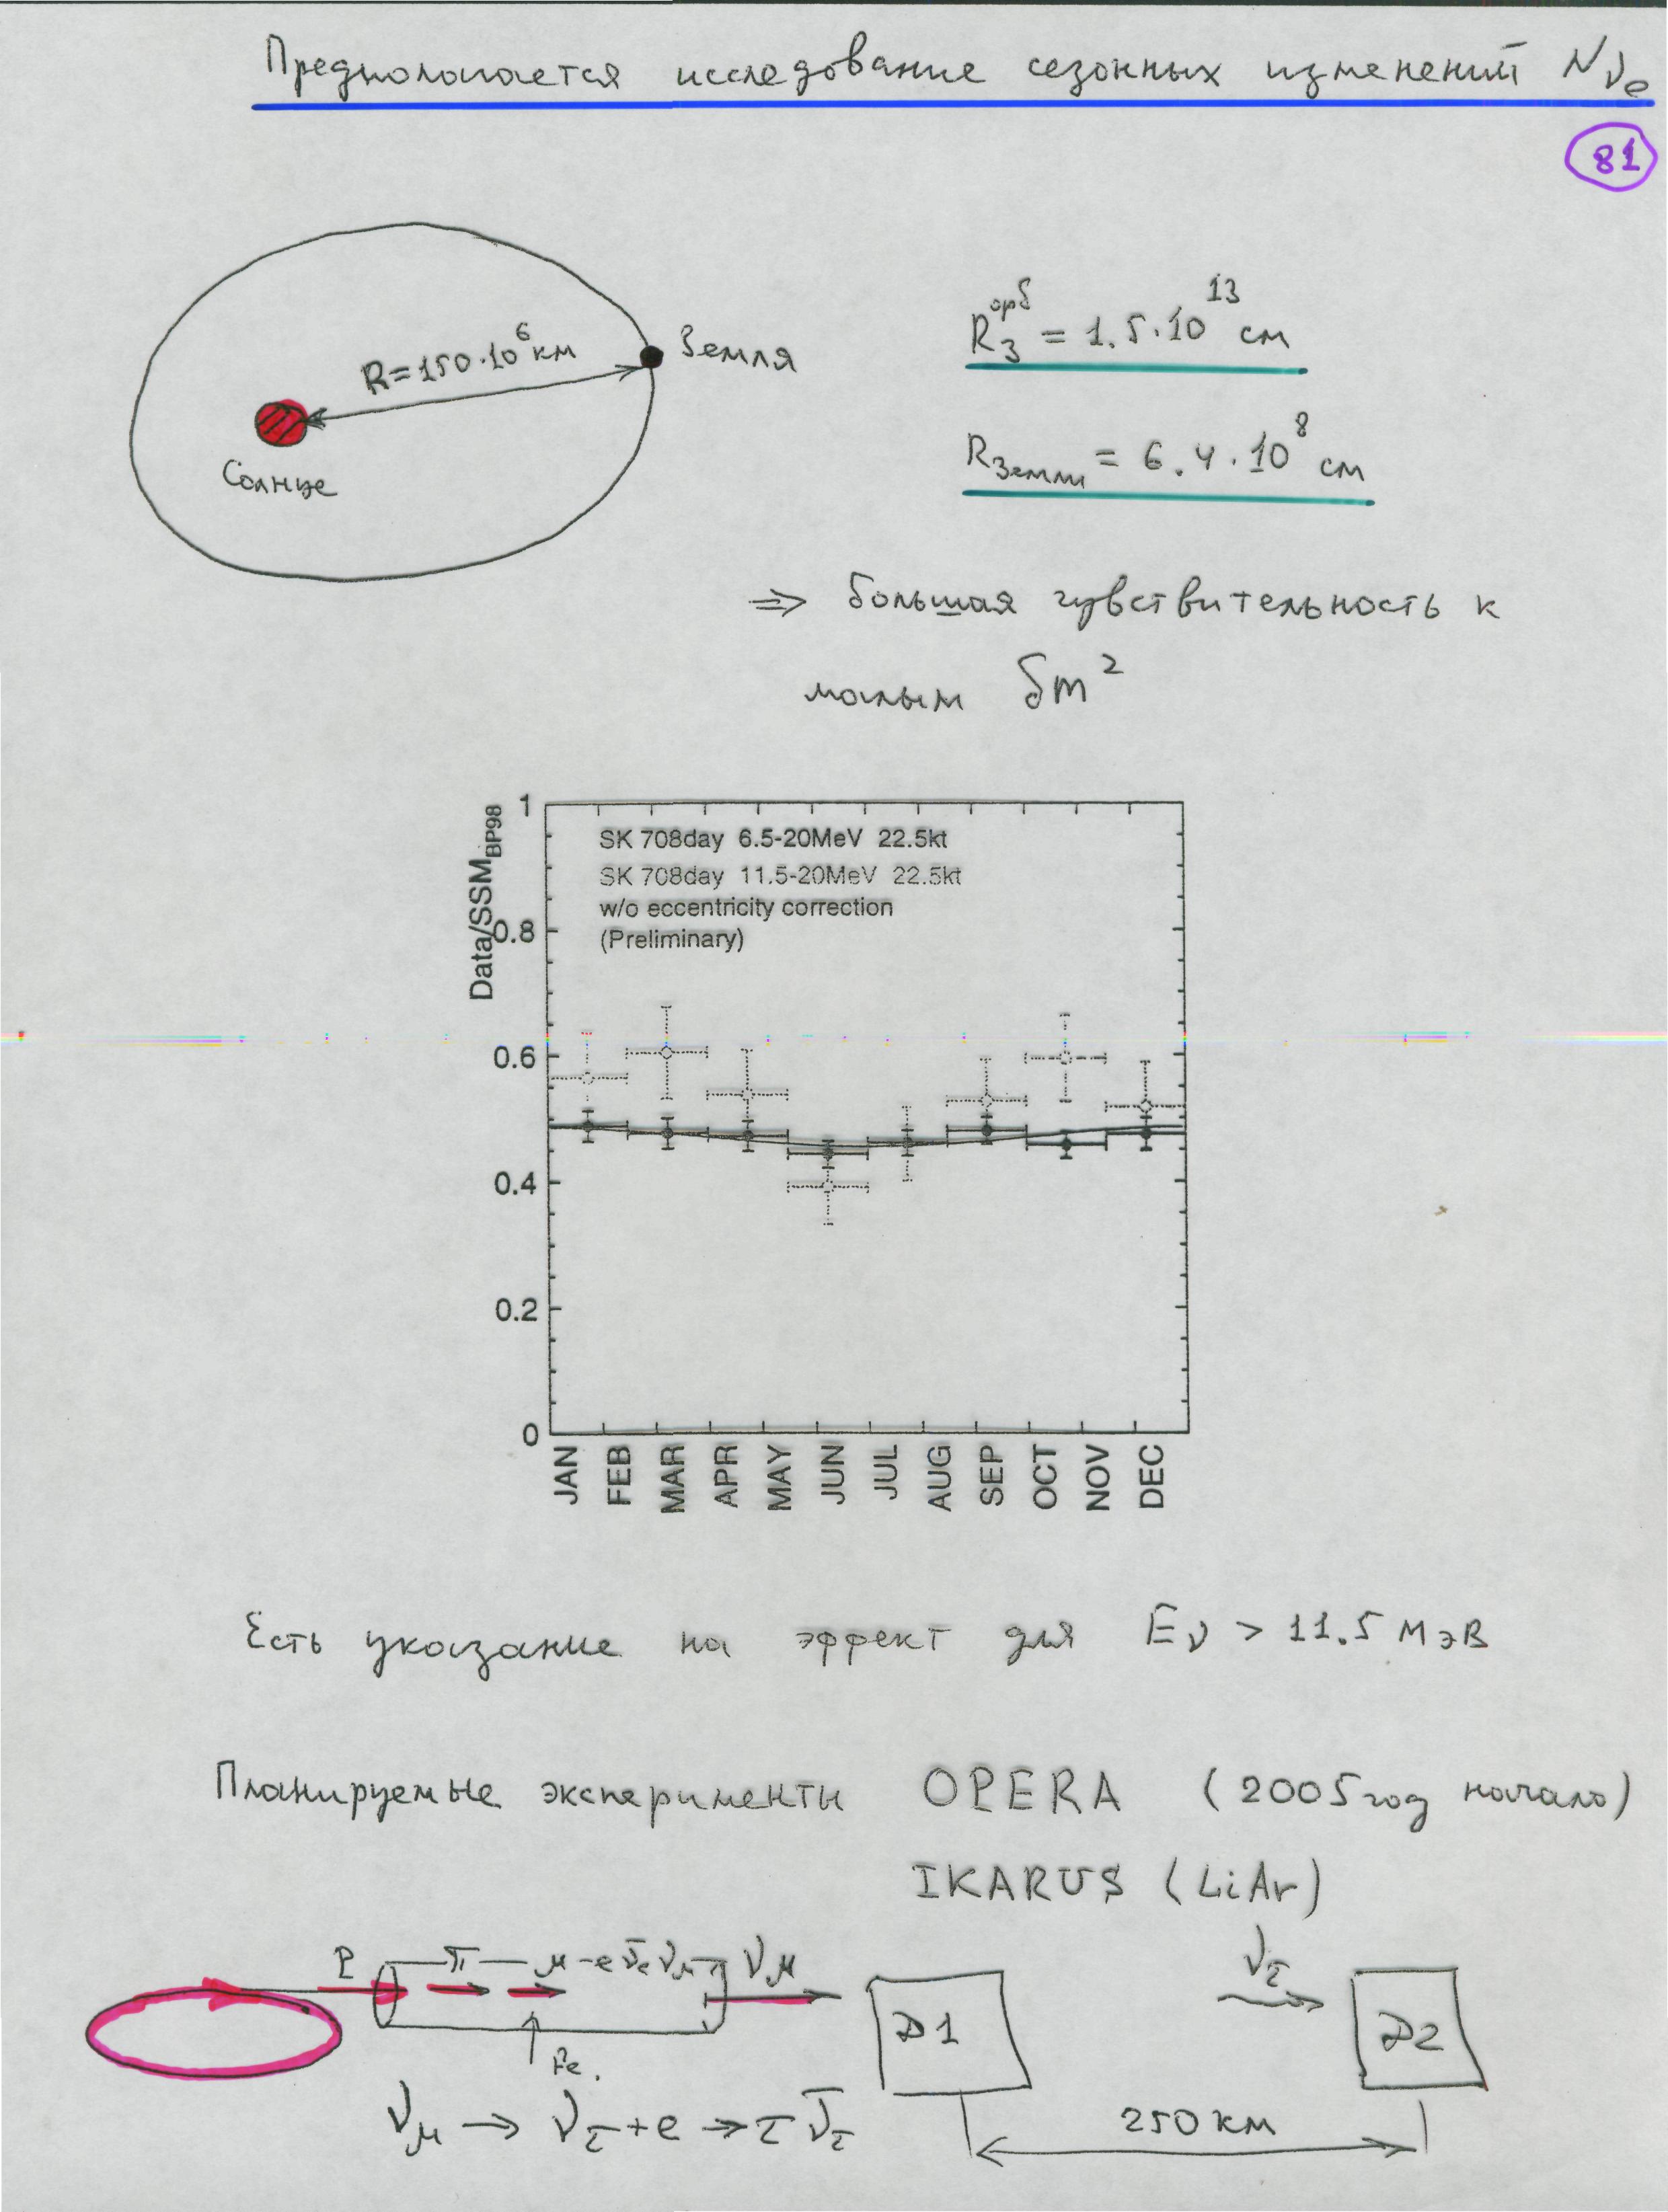 Предполагается исследование сезонных изменений Nνe
81
R=150·10⁶ км
Земля
Солнце
R₃ᵒʳᵇ = 1.5·10¹³ см
R Земли = 6.4·10⁸ см
⇒ большая чувствительность к
малым δm²
Data/SSM BP98
SK 708day 6.5-20MeV 22.5kt
SK 708day 11.5-20MeV 22.5kt
w/o eccentricity correction
(Preliminary)
1
0.8
0.6
0.4
0.2
0
JAN FEB MAR APR MAY JUN JUL AUG SEP OCT NOV DEC
Есть указание на эффект для Eν > 11.5 МэВ
Планируемые эксперименты OPERA (2005 год начало)
IKARUS (LiAr)
P π μ-e ν̄e νμ νμ
ντ
D1
D2
Fe.
νμ → ντ+e → τ ν̄τ
250 км